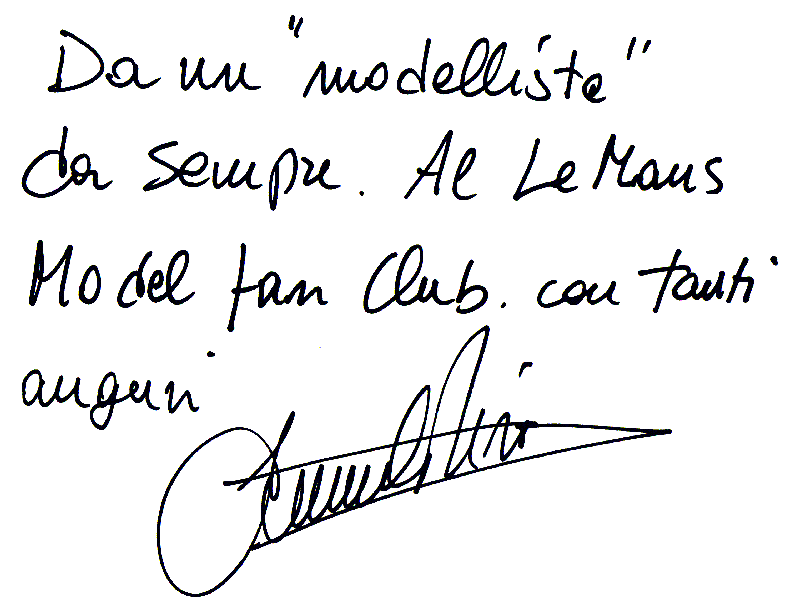 Da un "modellista"
da sempre. Al Le Mans
Model fan Club. con tanti
auguri